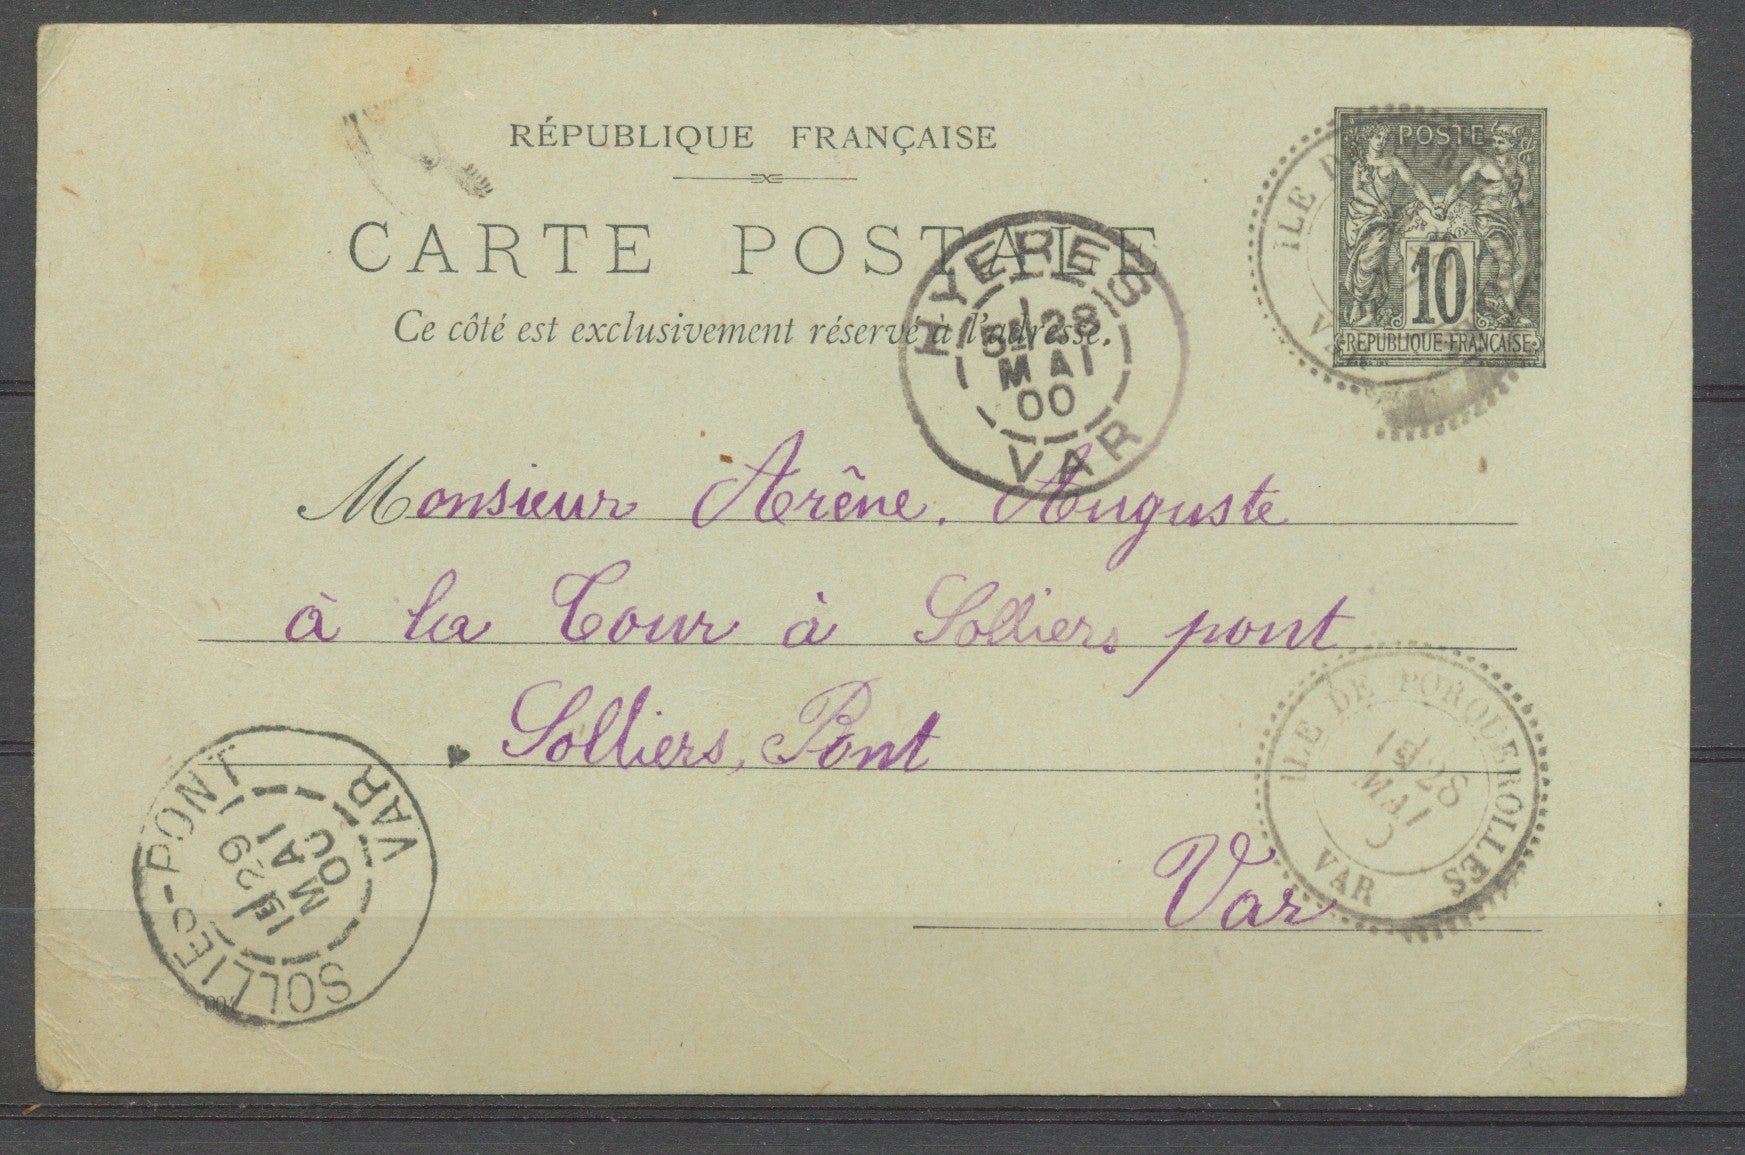 RÉPUBLIQUE FRANÇAISE
CARTE POSTALE
Ce côté est exclusivement réservé à l'adresse.
POSTE
10
REPUBLIQUE FRANÇAISE
ILE D
VAR
HYERES
5E 28
MAI
00
VAR
Monsieur Arêne. Auguste
à la Tour à Solliers pont
Solliers, Pont
Var
ILE DE PORQUEROLLES
1E 28
MAI
VAR
SOLLIES-PONT
1E 29
MAI
00
VAR